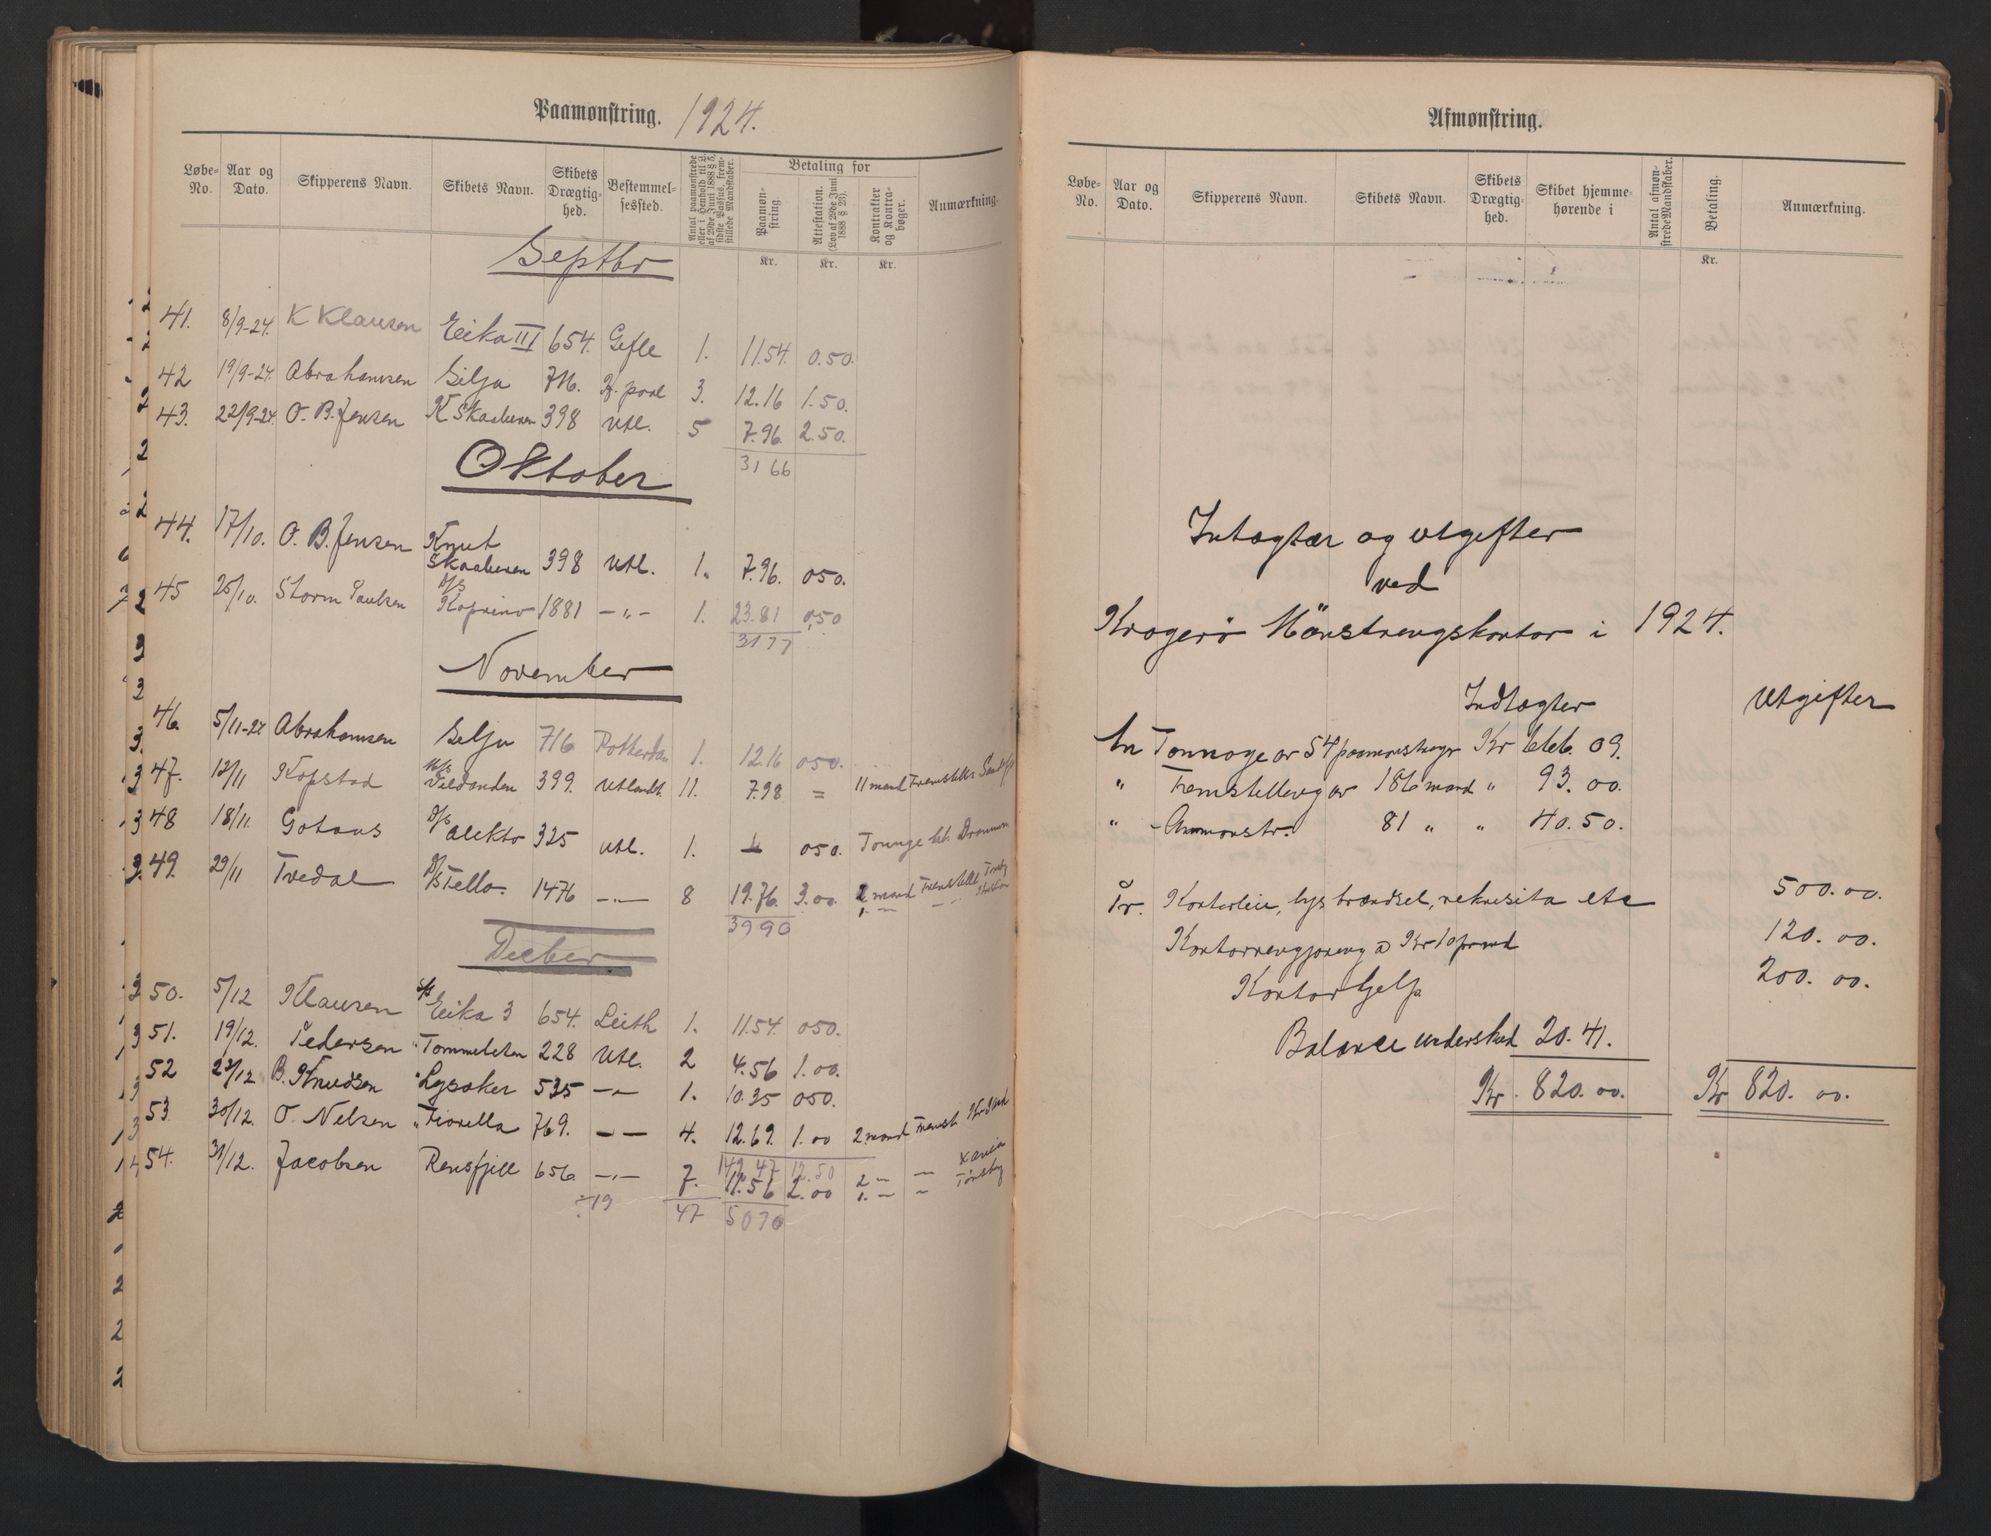 Paamønstring. 1924.
Løbe-No. Aar og Dato. Skipperens Navn. Skibets Navn. Skibets Drægtig-hed. Bestemmel-sessted. Antal paamønstrede eller i Henhold til L. af 29de Juni 1888 § 5, sidste Passus, frem-stillede Mandskaber. Betaling for Paamøn-string. Attestation. (Lov af 29de Juni 1888 § 23). Kontrakter og Kontra-bøger. Anmærkning.
Kr. Kr. Kr.
Septbr
41. 8/9-24. K Klausen Eika III 654. Gefle 1. 11.54. 0.50.
42 19/9-24. Abrahamsen Silja 716. pool 3. 12.16 1.50.
43. 22/9-24. O. B. Jensen K Skaaluren 398 Utl. 5 7.96. 2.50.
31 66
Oktober
44. 17/10. O. B. Jensen Knut Skaaluren 398 Utl. 1. 7.96. 050.
45 25/10. Storm Paulsen D/S Koprino 1881 -„- 1. 23.81 0,50
3177
November
46. 5/11-24 Abrahamsen Silja 716 Rotterdam 1. 12.16 050.
47. 12/11 Kopstad M/S Vildanden 399. Utlandt. 11. 7.98 = 11 mand Fremstillet
48 18/11. Gotaas D/S Alekto 325 Utl. 1. 050. Tonnage bet. Drammen
49. 29/11 Tvedal D/S Tello. 1476 -„- 8 19.76. 3.00. 2 mand Fremstillet
1. -„-
3990
Decber
50. 5/12 Klausen S/S Eika 3 654. Leith 1. 11.54. 050.
51. 19/12. Pedersen „ Tommeliten 228 Utl. 2 4.56 1.00.
52 23/12 B. Knudsen „ Lysaker 535 -„- 1. 10.35 050.
53. 30/12. O. Nelsen „ Fiorella 769. -„- 4. 12.69. 1.00 2 mand Fremst.
54. 31/12. Jacobsen Rensfjell 656 -„- 7. 11.56 2.00 2 -„-
1. -„- Tønsberg
÷19 47 5070
Afmønstring.
Løbe-No. Aar og Dato. Skipperens Navn. Skibets Navn. Skibets Drægtig-hed. Skibet hjemme-hørende i Antal afmøn-strede Mandskaber. Betaling. Anmærkning.
Kr.
Intægter og utgifter
ved
Kragerø Mønstringskontor i 1924.
Indtægter Utgifter
An Tonnage av 54 paamønstringer Kr 666. 09.
„ Fremstilling av 186 mand „ 93. 00.
„ Anmønstr. 81 „ „ 40. 50.
Pr. Kontorleie, lys brændsel, rekvisita etc 500. 00.
Kontorrengjøring a Kr 10 pr md 120. 00.
Kontorhjelp 200. 00.
Balance underskud 20. 41.
Kr. 820. 00. Kr 820. 00.